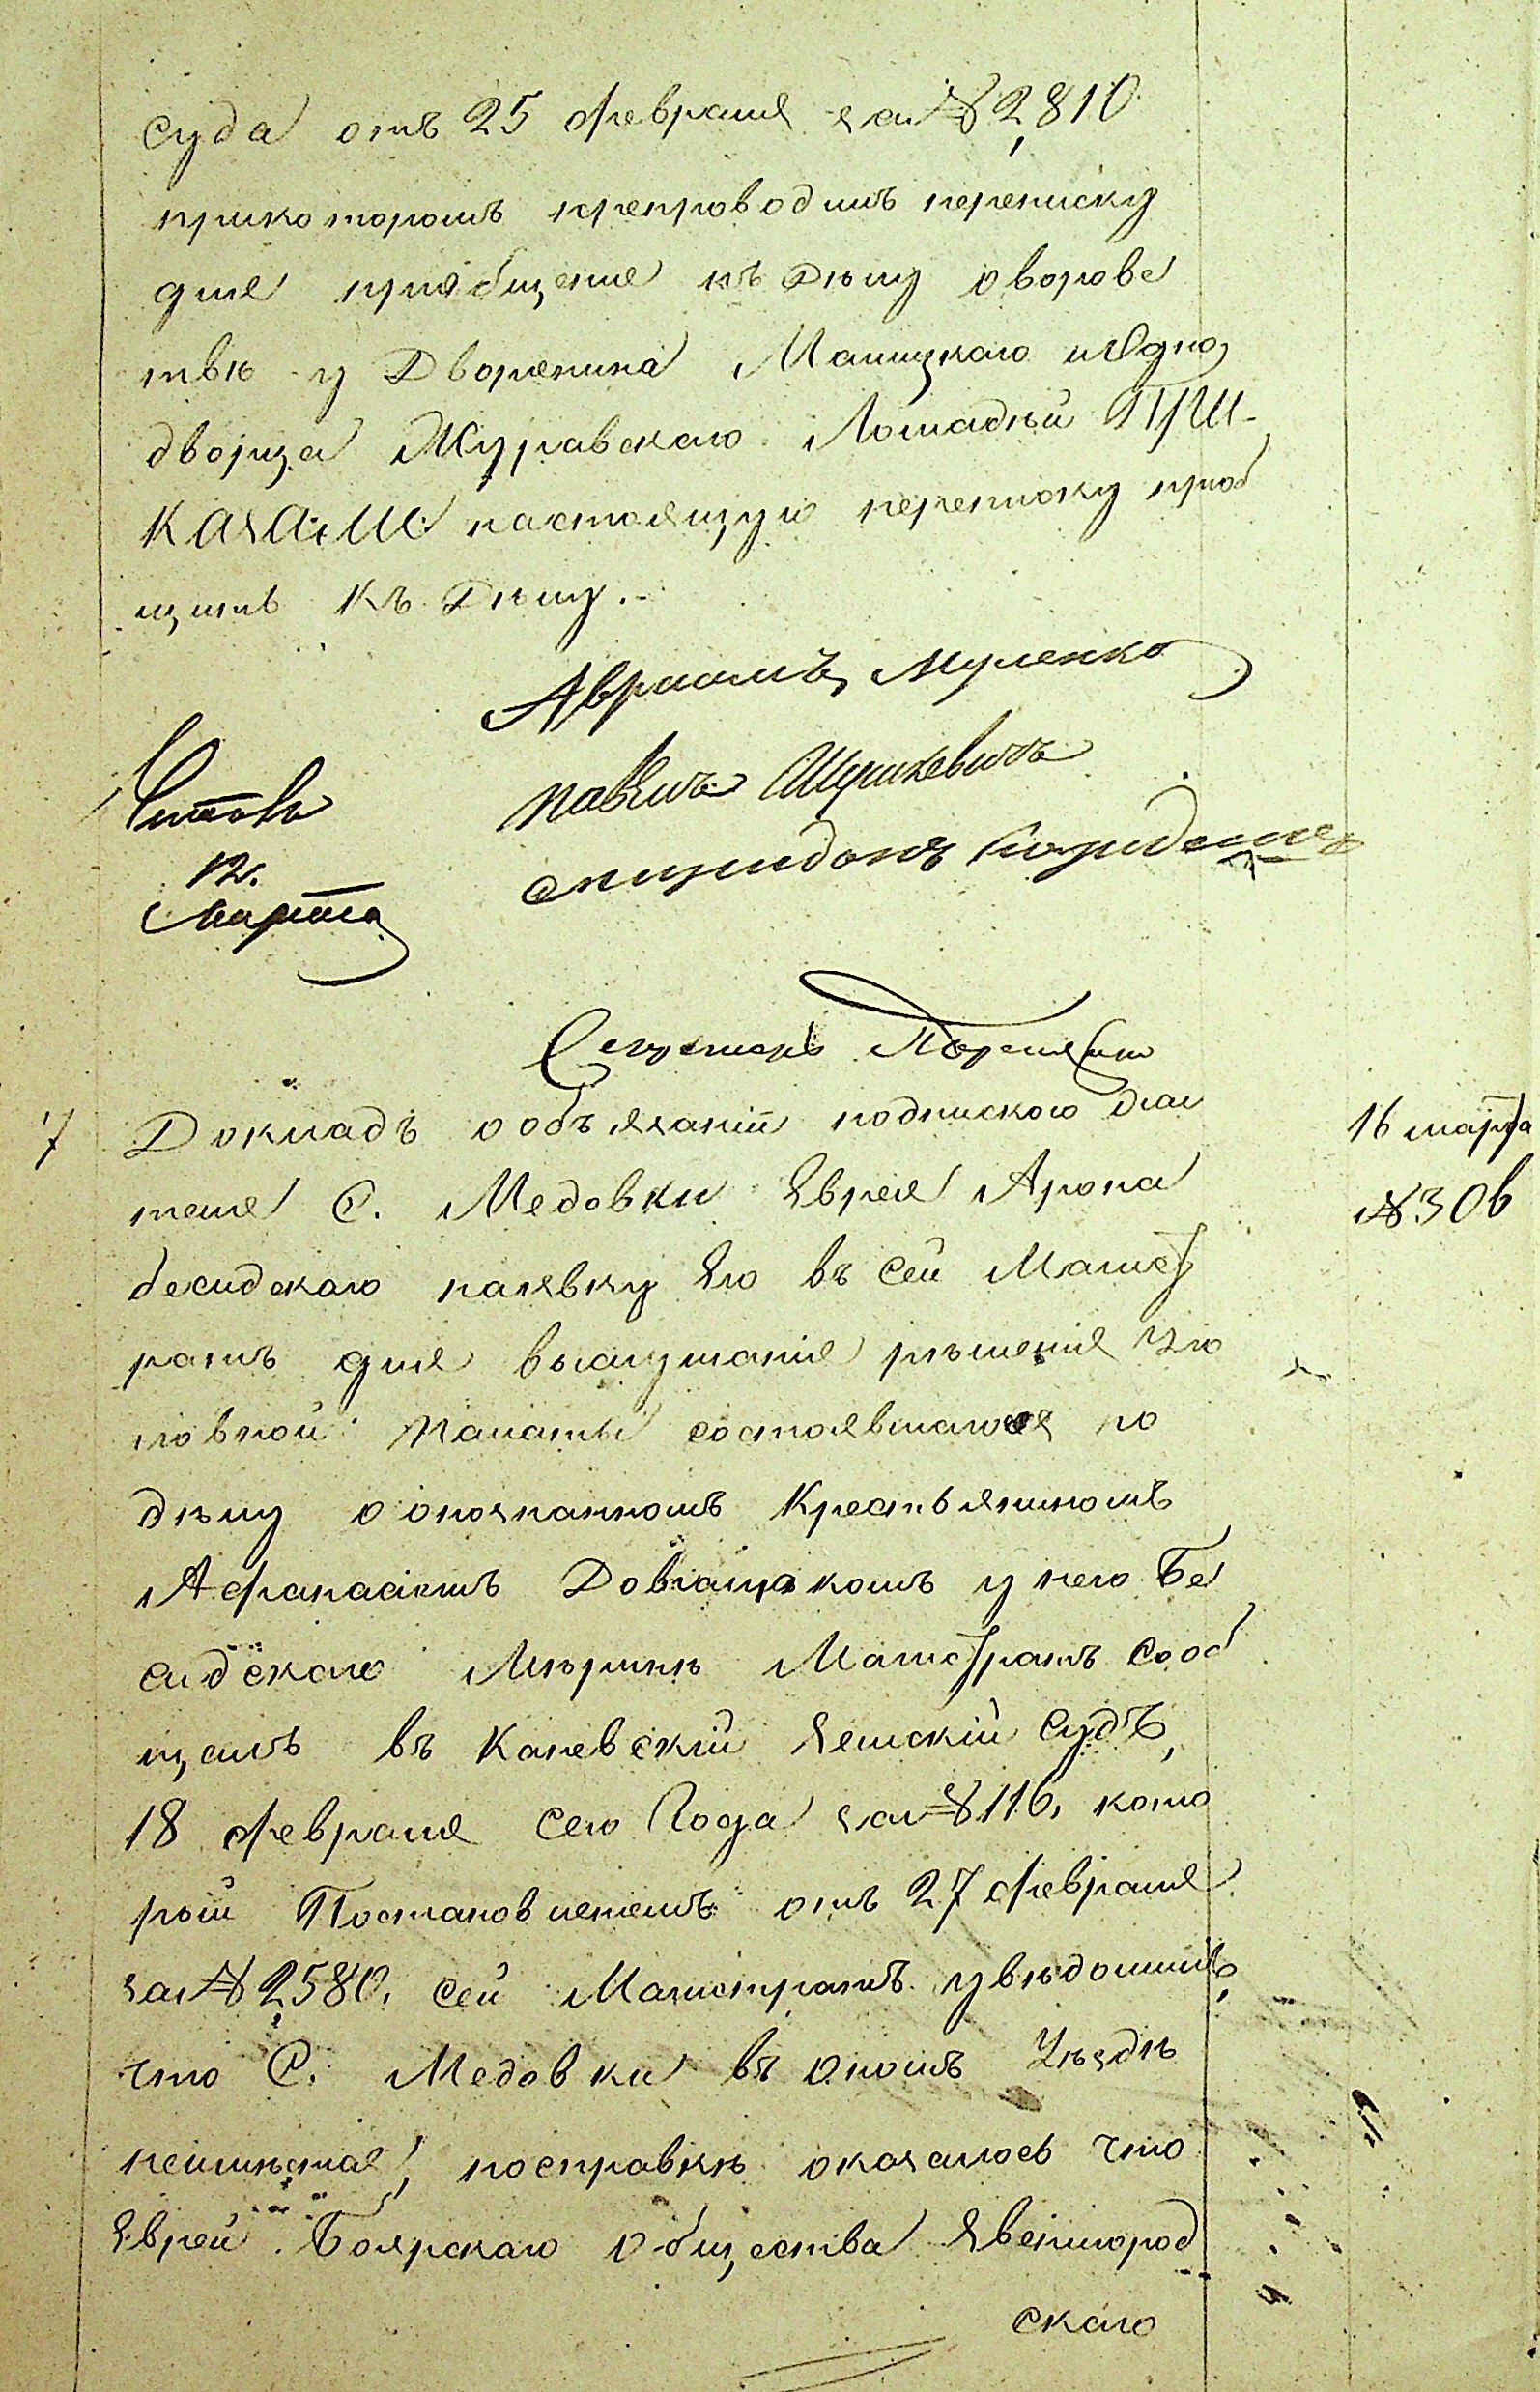 суда отъ 25 февраля за № 2,810
прикоторомъ препроводилъ переписку
для пріобщенія къ Дѣлу о воровс
твѣ у Дворянина Малицкаго и Одно
дворца Журавскаго Лошадѣй ПРИ-
КАЗАЛИ: настоящую переписку приоб
щить къ Дѣлу.-
Авраамъ Муленко
Павелъ
Спиридонъ
Читалъ
12.
Марта
Секретарь
7 Докладъ о обязаніи подпискою Жи
16 марта
теля С. Медовки Еврея Арона
№ 306
бесидскаго наявку Его въ сей Магист
ратъ для выслушанія рѣшенія Уго
ловной Палаты состоявшагося по
дѣлу о опознанномъ Крестьяниномъ
Афанасіемъ у него Бе
сидскаго Меринѣ Магистратъ сооб
щалъ въ Каневскій Земскій Судъ,
18 февраля сего Года за № 116, кото
рый Постановленіемъ отъ 27 февраля
за № 2,580, сей Магистратъ увѣдомилъ,
что С. Медовки въ ономъ Уѣздѣ
неимѣется, посправкѣ оказалось что
Еврей Боярскаго Общества Звенигород
скаго